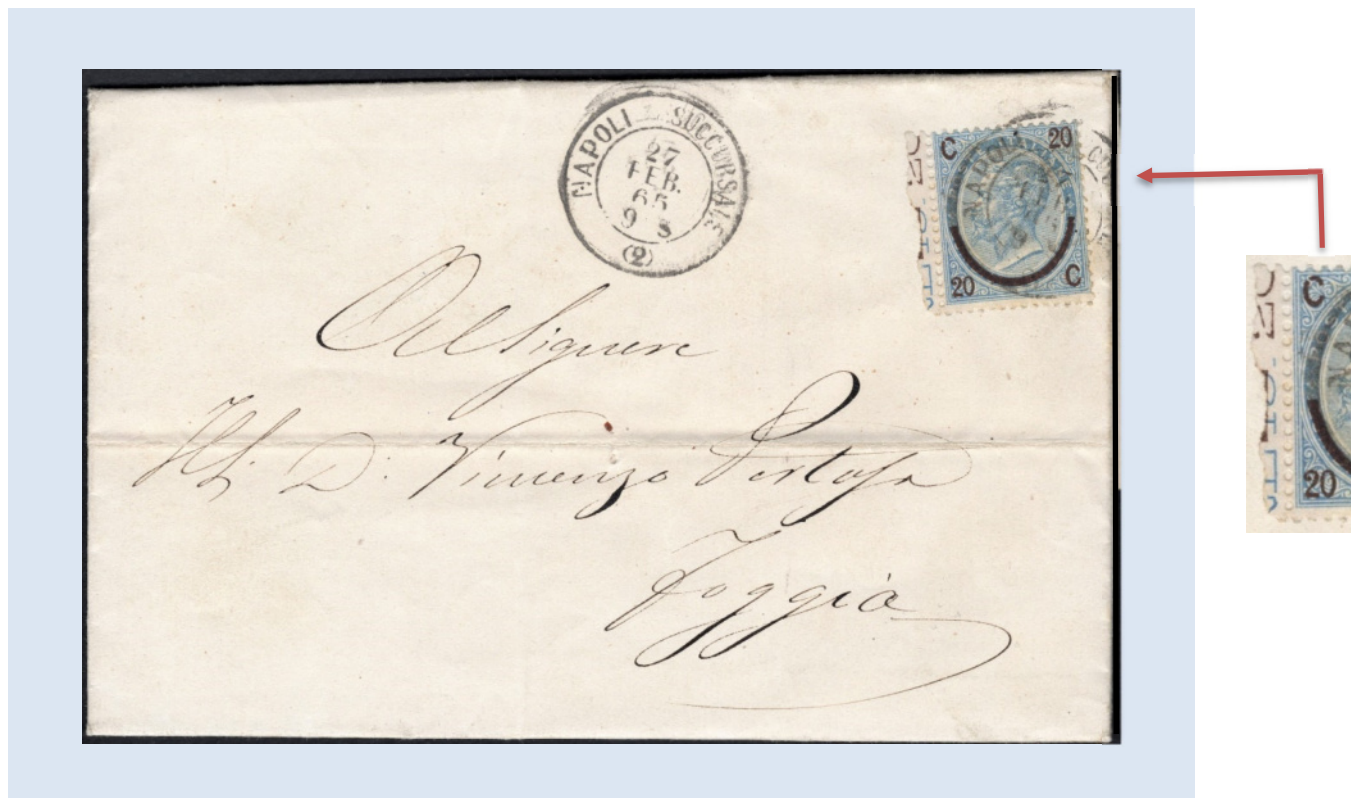 NAPOLI SUCCURSALE
27
FEB.
65
9 S
(2)
C 20
NAPOLI
20 C
Al Signore
D. Vincenzo
Foggia
C
20